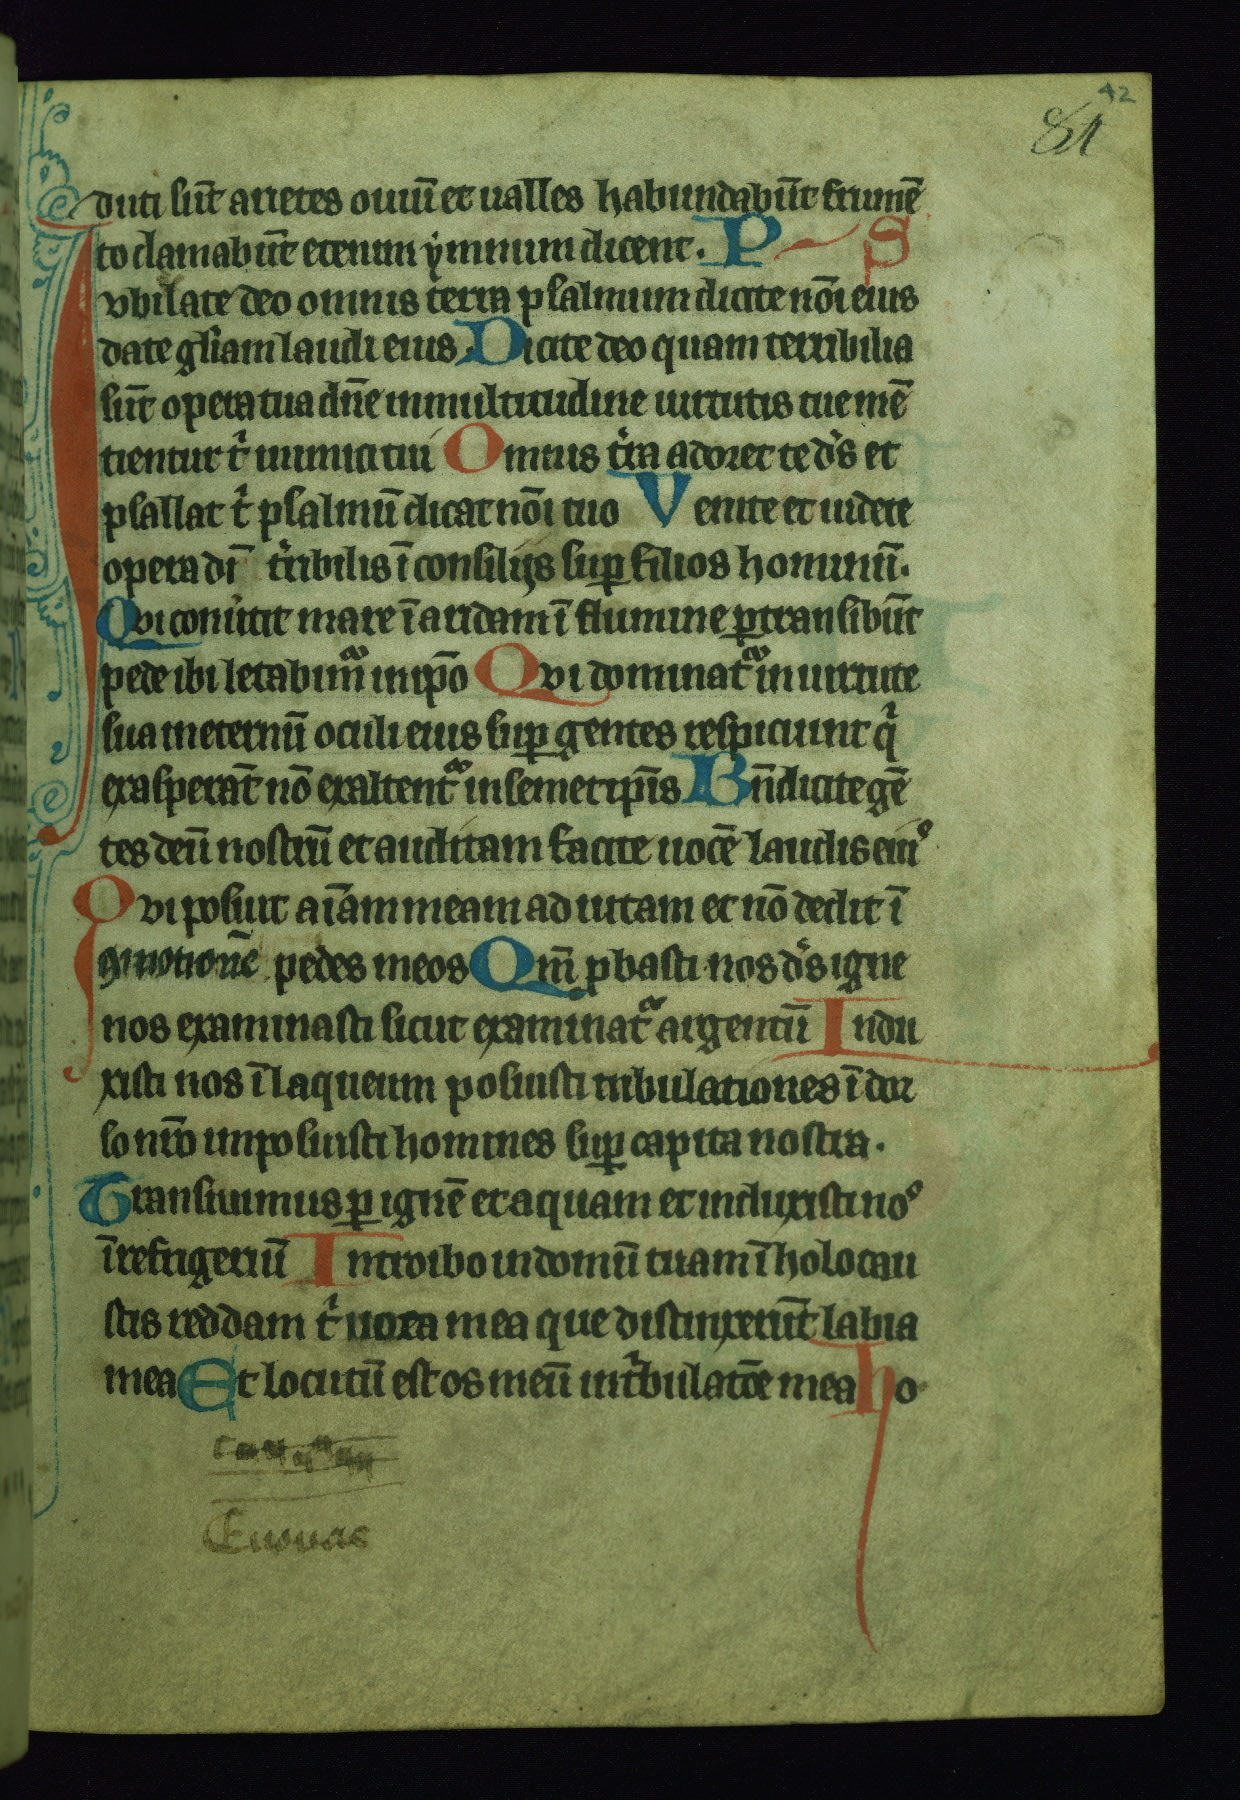 42
81
duti sūt arietes ouiū et ualles habundabūt frumē
to clamabūt etenim ẏmnum dicent. P S
Jvbilate deo omnis terra psalmum dicite nōi eius
date gl̄iam laudi eius. Dicite deo quam terribilia
sūt opera tua dn̄e in multitudine uirtutis tue mē
tientur tͥ inimici tui Omnis tͬra adoret te ds̄ et
psallat tͥ psalmū dicat nōi tuo Venite et uidete
opera dī tͬribilis ī consilijs suꝑ filios hominū.
Qvi conūtit mare ī aridam ī flumine ꝑtransibūt
pede ibi letabimͬ in ip̄o Qvi dominatͬ in uirtute
sua in eternū oculi eius suꝑ gentes respiciunt qͥ
exasperāt nō exaltentͬ in semetip̄is Bn̄dicite gē
tes deū nostrū et auditam facite uocē laudis eiꝰ
Qvi posuit aīam meam ad uitam et nō dedit ī
ꝯmotionē pedes meos Qm̄ ꝓbasti nos ds̄ igne
nos examinasti sicut examinatͬ argentū Indu
xisti nos ī laqueum posuisti tribulationes ī dor
so nr̄o inposuisti homines suꝑ capita nostra.
Transiuimus ꝑ ignē et aquam et induxisti noꝰ
ī refrigeriū Introibo in domū tuam ī holocau
stis reddam tͥ uota mea que distinxerūt labia
mea Et locutū est os meū in tͥbulatōe mea Ho
Euouae